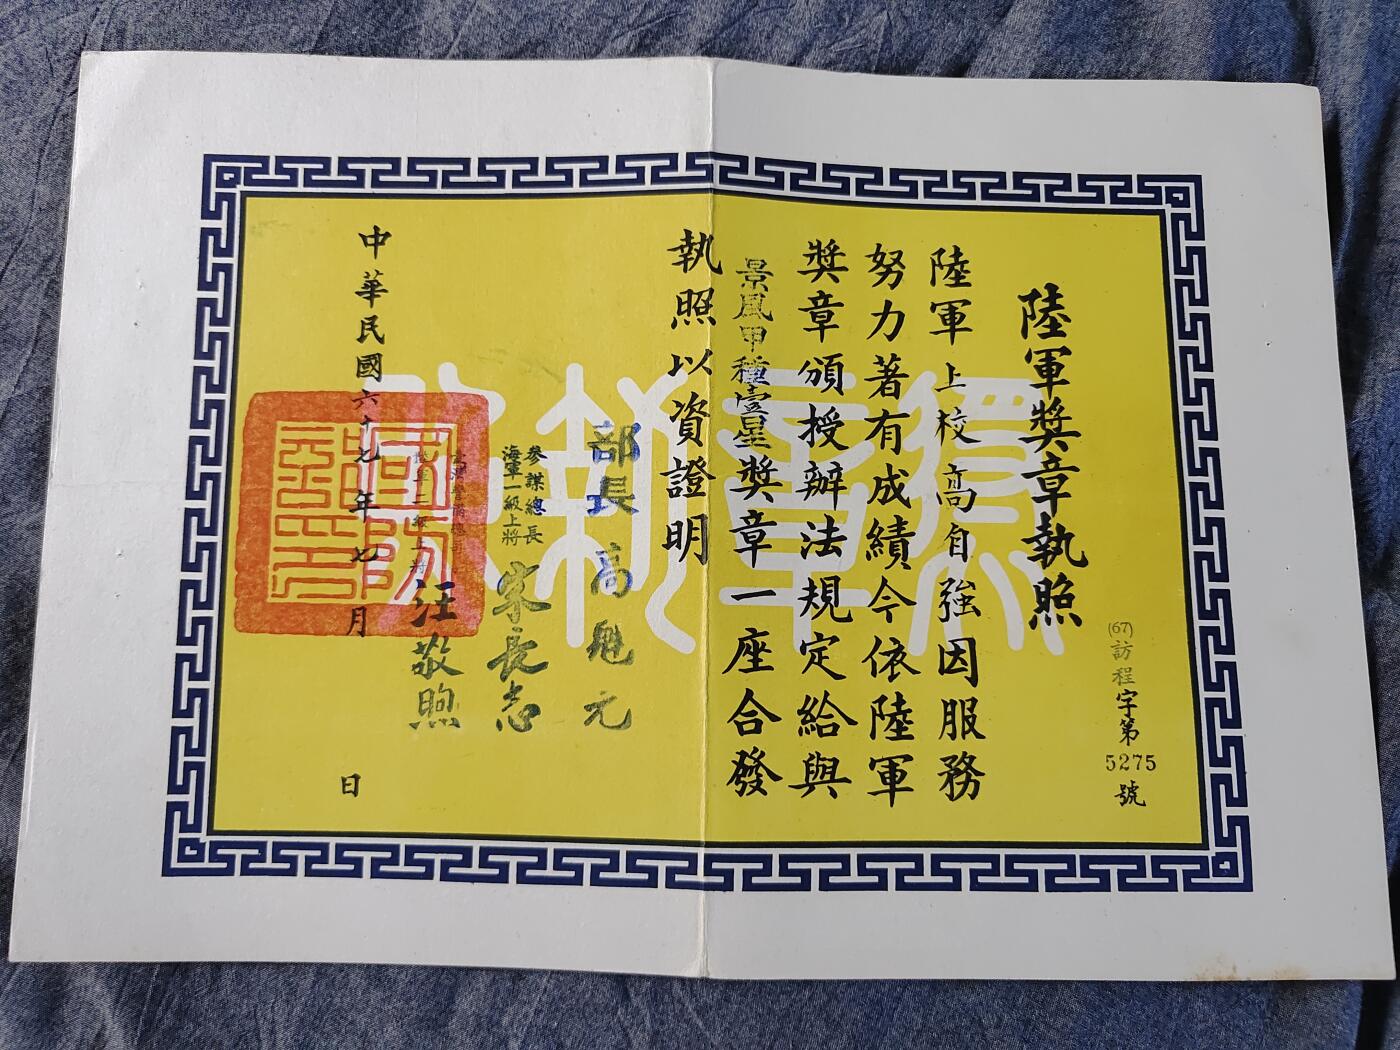 陸軍獎章執照
(67)訪程字第5275號
陸軍上校高自強因服務
努力著有成績今依陸軍
獎章頒授辦法規定給與
景風甲種壹星獎章一座合發
執照以資證明
部長高魁元
參謀總長
海軍一級上將
宋長志
汪敬煦
中華民國六十七年七月日